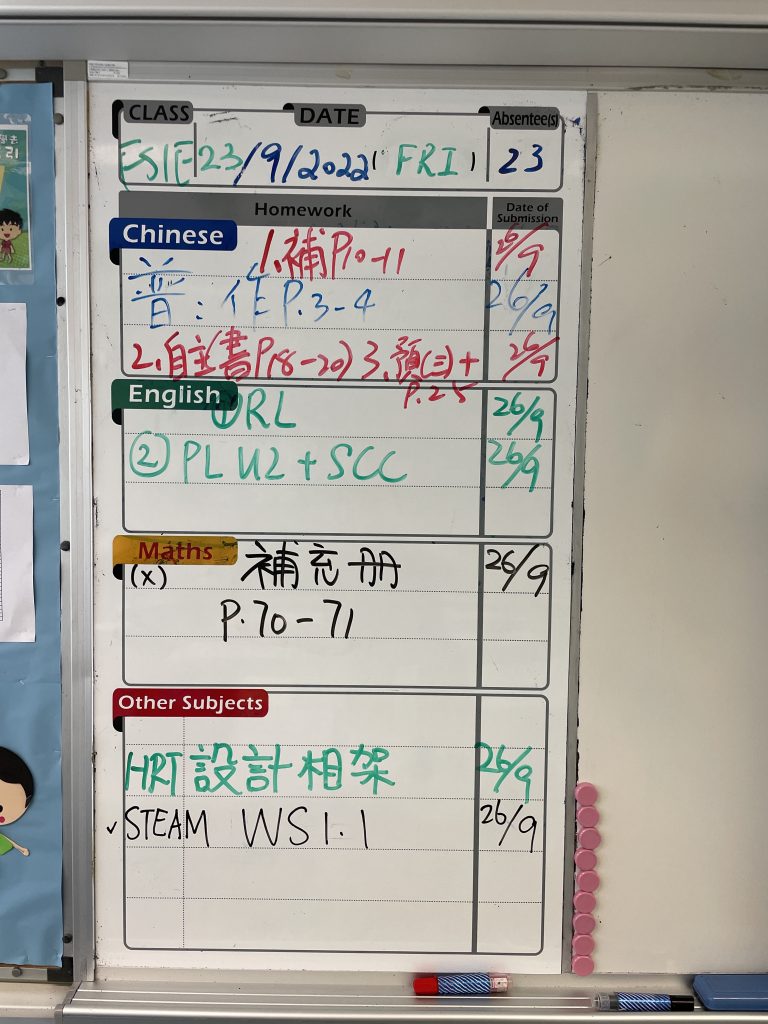 CLASS DATE Absentee(s)
23/9/2022 ( FRI ) 23
Homework Date of Submission
Chinese
1.補P10-11 26/9
普:作P.3-4 26/9
2.自主(書P18-20) 3.預(三)+ 26/9
P.25
English
①RL 26/9
②PL U2+SCC 26/9
Maths
(x) 補充册 26/9
P.70-71
Other Subjects
HRT 設計相架 26/9
✓STEAM WS1.1 26/9